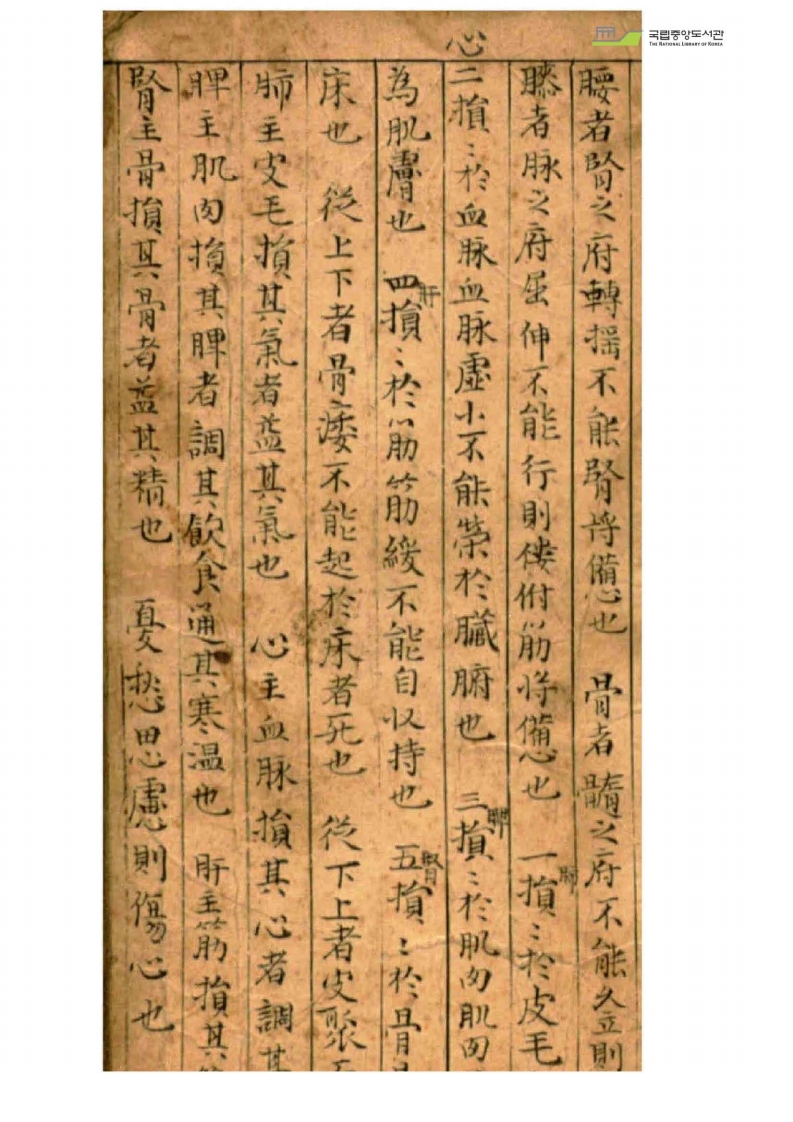 국립중앙도서관
THE NATIONAL LIBRARY OF KOREA
腰者腎之府轉揺不能腎将憊也 骨者髓之府不能久立則
膝者脉之府屈伸不能行則偻俯筋将憊也 一損〻於皮毛
肺
心
二損〻於血脉血脉虛小不能榮於臓腑也 三損〻於肌肉肌肉
脾
為肌膚也 四損〻於筋筋緩不能自収持也 五損〻於骨
肝
腎
床也 從上下者骨痿不能起於床者死也 從下上者皮聚
肺主皮毛損其氣者益其氣也 心主血脉損其心者調其
脾主肌肉損其脾者調其飲食通其寒温也 肝主筋損其
腎主骨損其骨者益其精也 憂愁思慮則傷心也